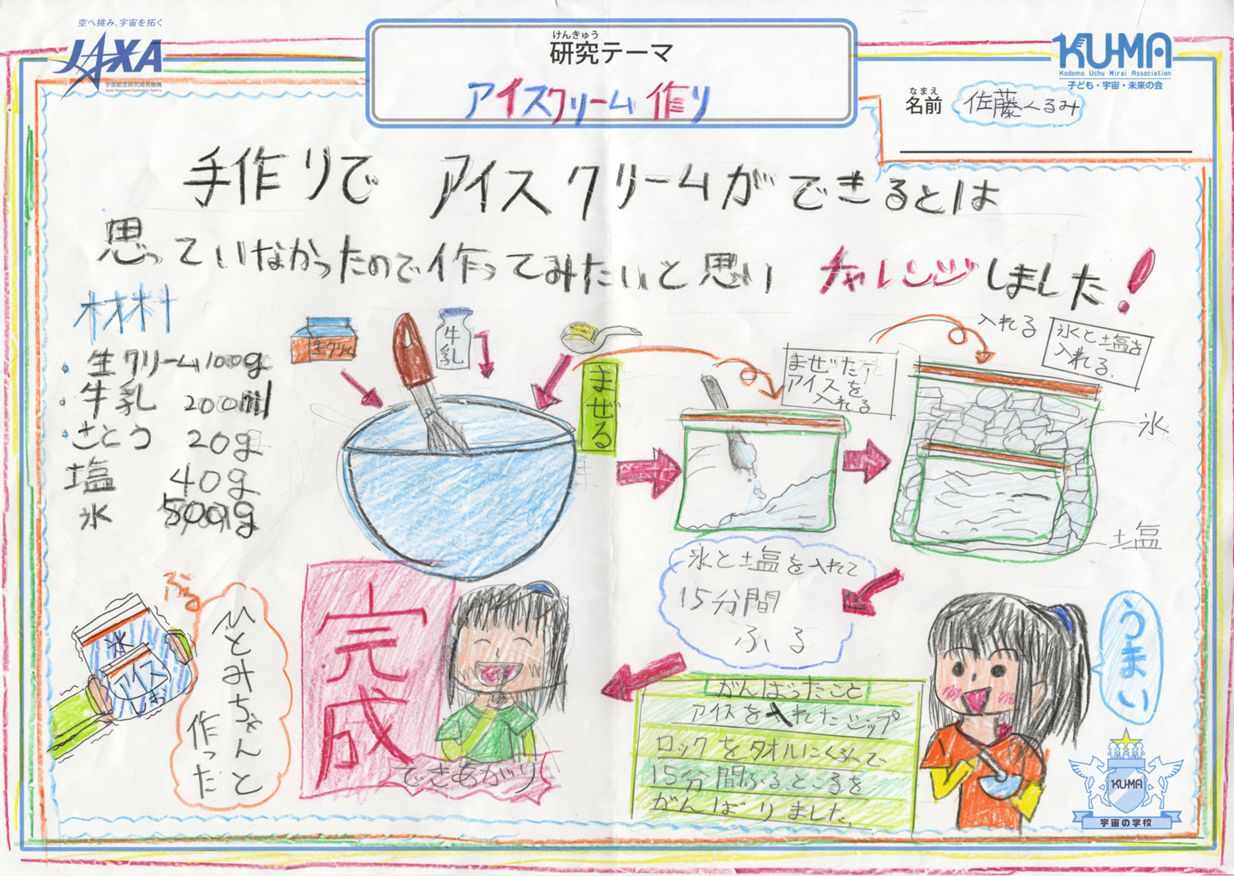 空へ挑み、宇宙を拓く
JAXA
宇宙航空研究開発機構
Japan Aerospace Exploration Agency
けんきゅう
研究テーマ
アイスクリーム作り
KU-MA
Kodomo Uchu Mirai Association
子ども・宇宙・未来の会
なまえ
名前 佐藤くるみ
手作りで アイスクリームができるとは
思っていなかったので作ってみたいと思い チャレンジしました!
材料
・生クリーム100g
・牛乳 200ml
・さとう 20g
塩 40g
氷 500g
生クリーム
牛乳
まぜる
まぜた
アイスを
入れる
入れる
氷と塩を
入れる.
氷
塩
氷と塩を入れて
15分間
ふる
うまい
がんばったこと
アイスを入れたジップ
ロックをタオルにくるんで
15分間ふるところを
がんばりました。
完成
できあがり
ひとみちゃんと
作った
ぶる
氷
アイス
KUMA
宇宙の学校